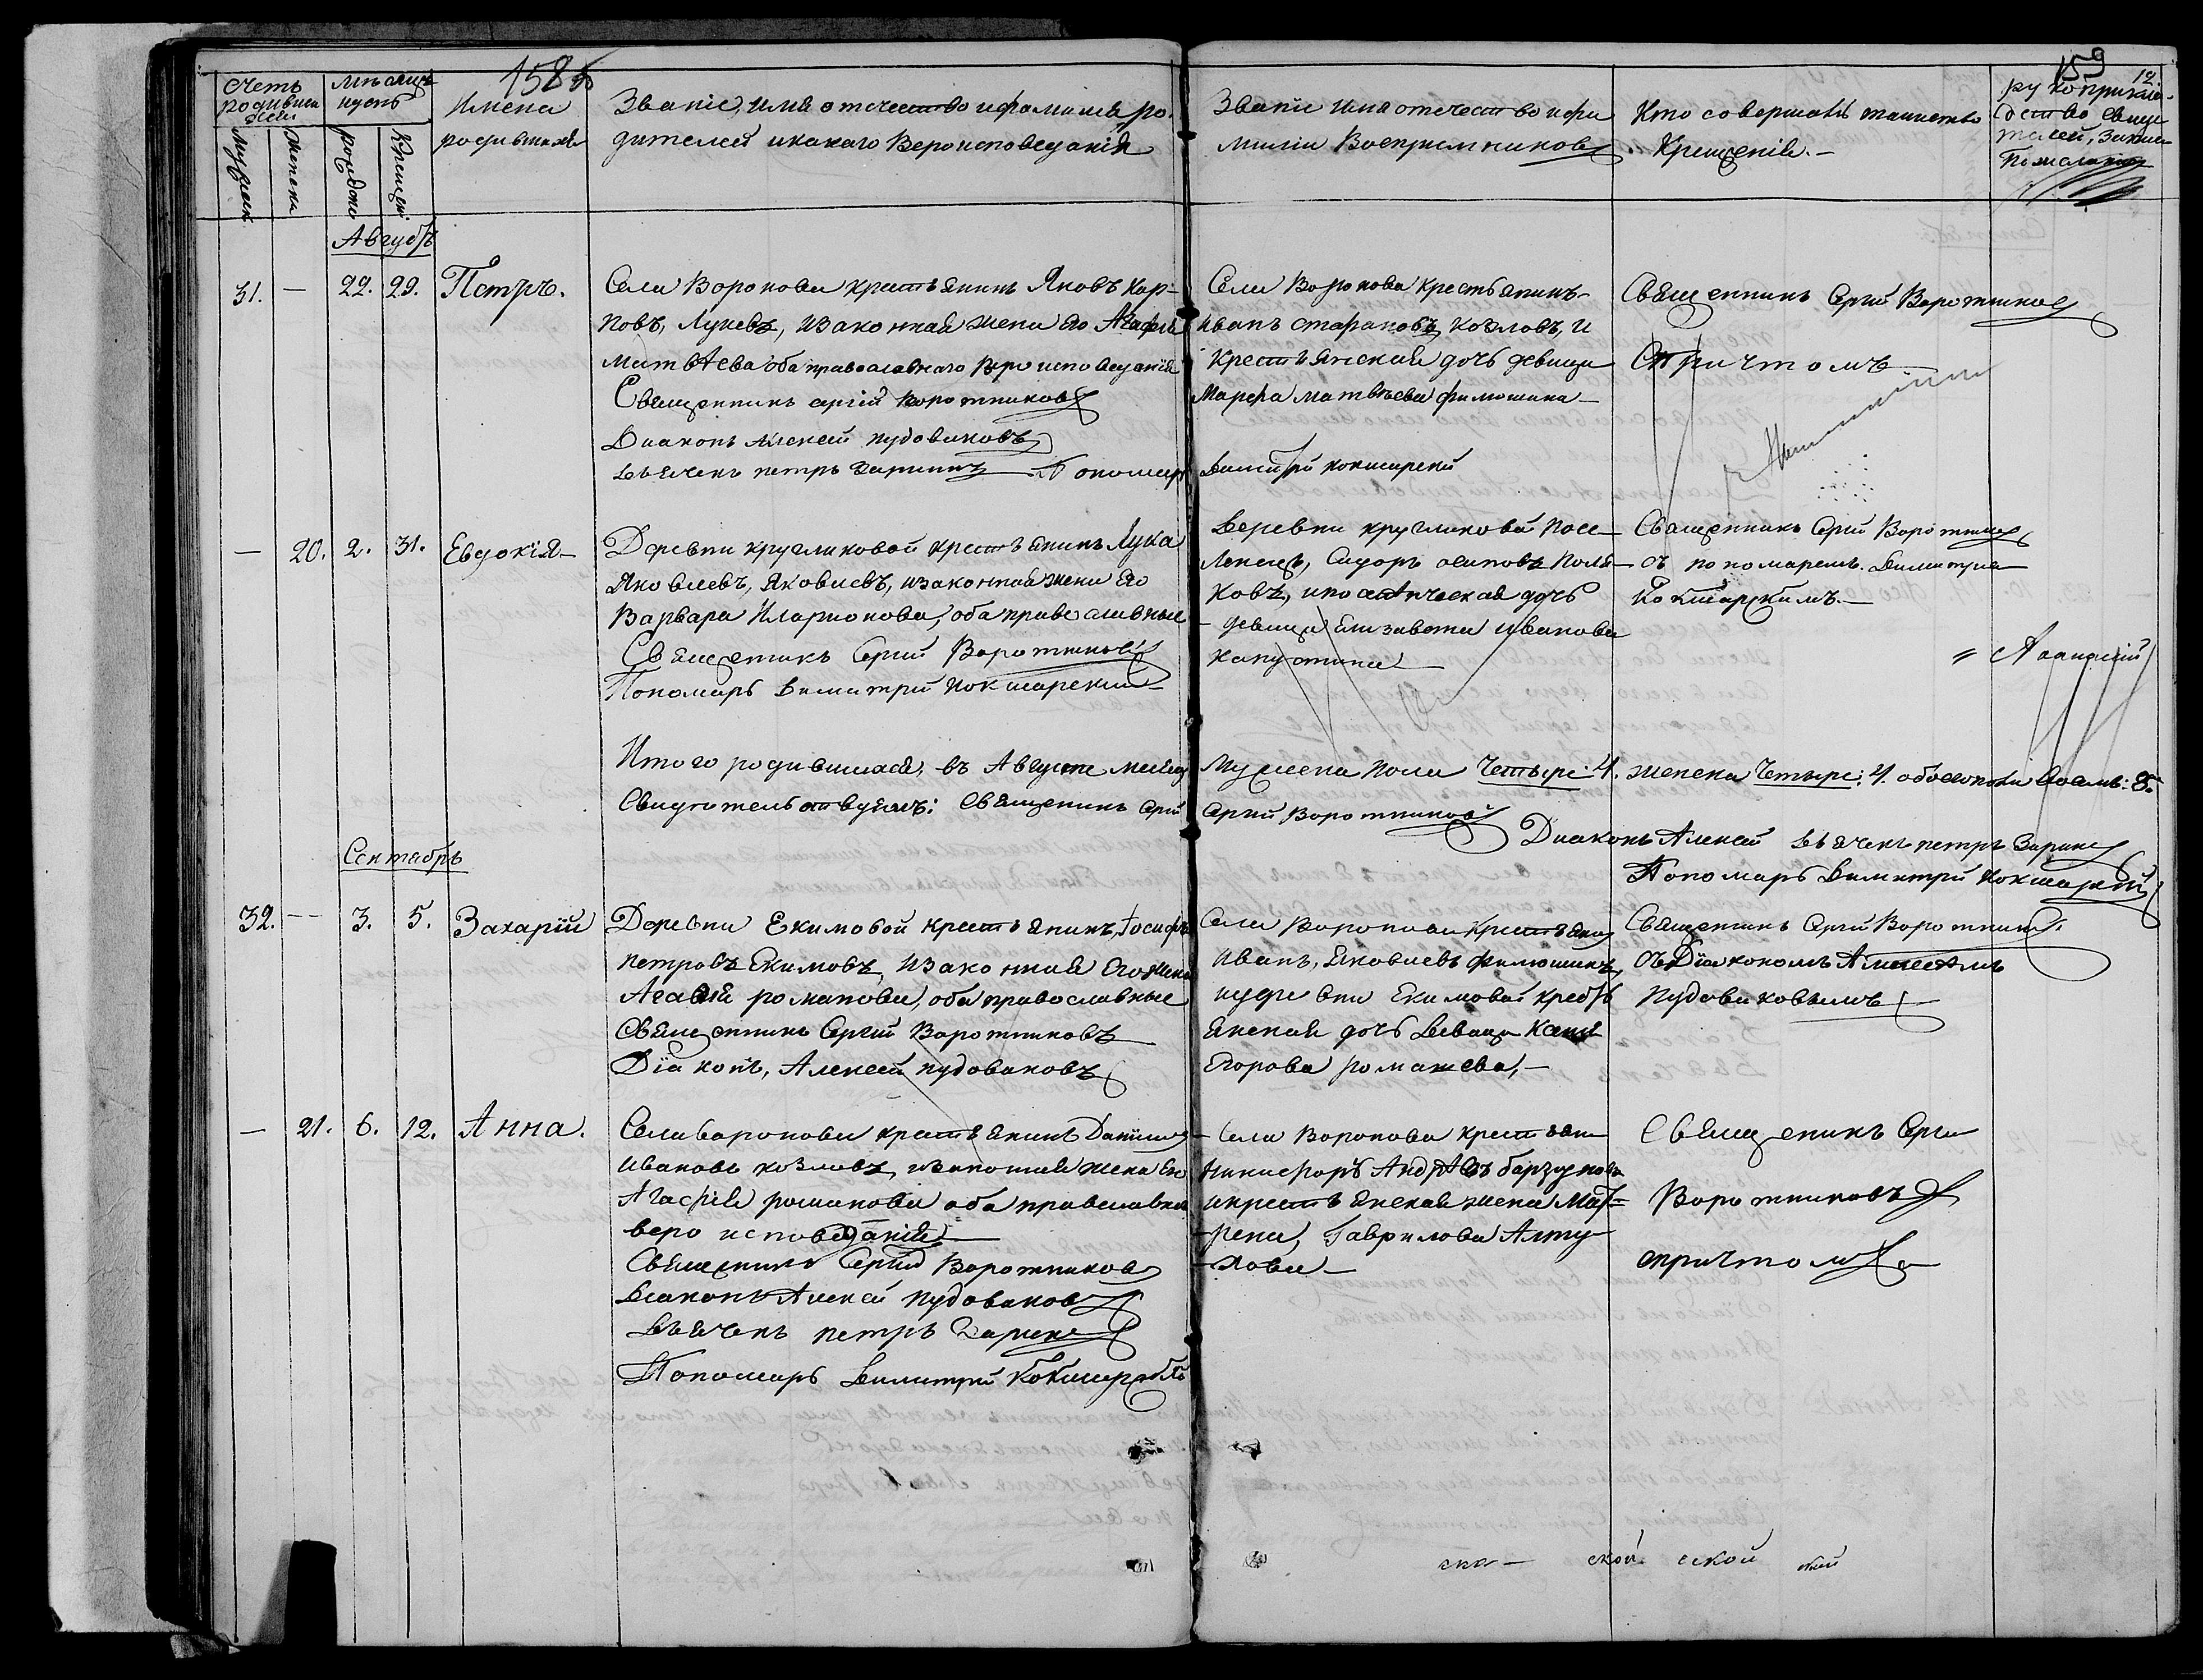 158
159
12.
Счетъ родившихся
Мѣсяцъ и день
Мужеск
Женска
рожденія
Крещен.
Имена
родившихся
Званіе, имя отечество и фамилія ро-
дителей и какаго Вероисповеданія
Званіе имя отечество и фа
миліи Воспріемниковъ
Кто совершалъ таинство
Крещенія. –
рукоприклад-
ство свиде
телей, записи
по желанію
Августъ
31. — 22. 29. Петръ.
Села Воронова крестьянинъ Яковъ Кар-
повъ, Лукевъ, и законная жена его Агафія
Матвѣева оба православнаго Вероисповеданія
Священникъ Сергій Воротниковъ
Диаконъ Алексей Пудовиковъ
Дьячекъ Петръ Заринъ Пономарь Димитрій Кокшарскій
Села Воронова Крестьянинъ
Иванъ Козловъ, и
Крестьянская дочь девица
Марфа Матвѣева Филюшина
Священникъ Сергій Воротниковъ
Съ Причтомъ
— 20. 2. 31. Евдокія –
Деревни Кругликовой крестьянинъ Лука
Яковлевъ, Яковлевъ, и законная жена Его
Варвара Иларионова, оба православные
Священникъ Сергій Воротниковъ
Пономарь Димитрій Кокшарскій
Деревни Кругликовой Посе-
ленецъ, Сидоръ Осиповъ Поля-
ковъ, и дочь
девица Елизавета Иванова
Капустина
Священникъ Сергій Воротниковъ
съ пономаремъ Димитріемъ
Кокшарскимъ. —
Итого родившихся, въ Августе месяце
Мужеска пола Четыре: 4. женска Четыре: 4. обоего пола восемь: 8.
Свидетельствуемъ: Священникъ Сергій
Сергій Воротниковъ
Диаконъ Алексей Дьячекъ Петръ Заринъ
Пономарь Димитрій Кокшарскій
Сентябрь
32. — 3. 5. Захарій
Деревни Екимовой крестьянинъ, Іосифъ
Петровъ Екимовъ, и законная Его жена
Агафія Романова, оба православные
Священникъ Сергій Воротниковъ
Діаконъ, Алексей Пудовиковъ
Села Воронова крестьянинъ
Иванъ, Яковлевъ Филюшинъ,
и деревни Екимовой крест
янская дочь Девица
Егорова Ромашева, —
Священникъ Сергій Воротниковъ
Съ Діакономъ Алексеемъ
Пудовиковымъ
— 21. 6. 12. Анна.
Села Воронова крестьянинъ Даниилъ
Ивановъ Козловъ, и законная жена Его
Агафія Романова оба православна
вероисповеданія
Священникъ Сергій Воротниковъ
Диаконъ Алексей Пудовиковъ
Дьячекъ Петръ Заринъ
Пономарь Димитрій Кокшарскій
Села Воронова крестьян
Никифоръ Андреевъ
и крестьянская жена Мат-
рена, Гаврилова Алту-
хова —
Священникъ Сергій
Воротниковъ
с причтомъ
ска — ской ской